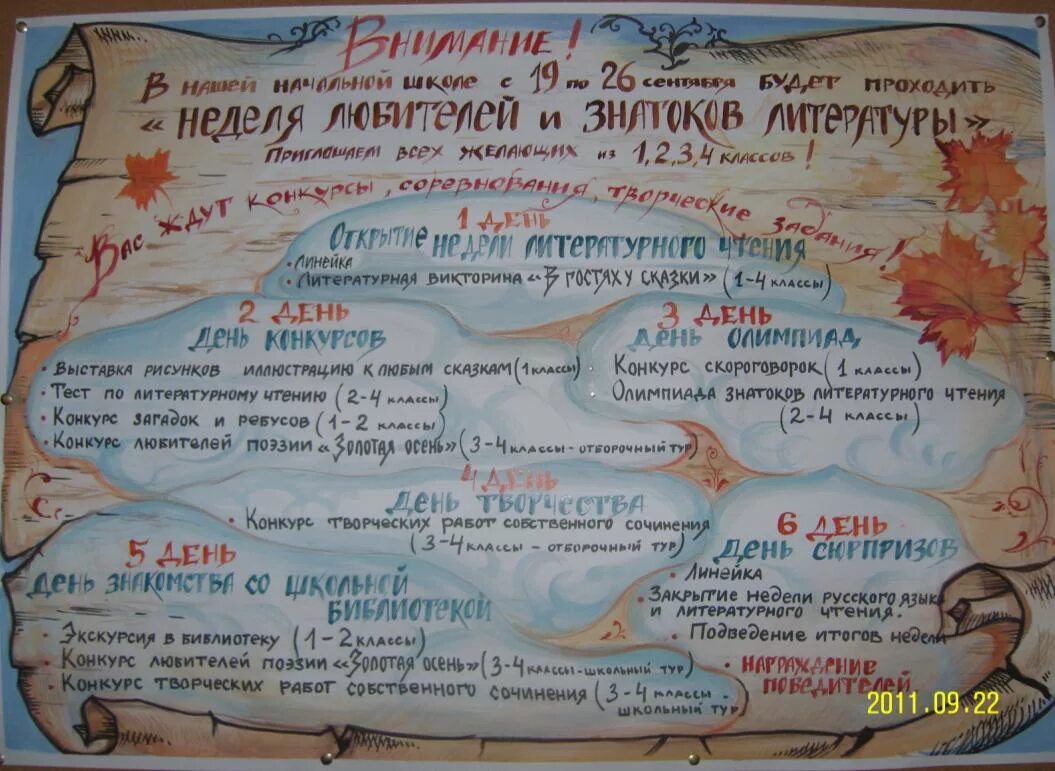 Внимание!
В нашей начальной школе с 19 по 26 сентября будет проходить
«Неделя любителей и знатоков литературы»
Приглашаем всех желающих из 1,2,3,4 классов!
Вас ждут конкурсы, соревнования, творческие задания!
1 день
Открытие недели литературного чтения
• Линейка
• Литературная викторина «В гостях у сказки» (1-4 классы)
2 день
День конкурсов
• Выставка рисунков иллюстрацию к любым сказкам (1 классы)
• Тест по литературному чтению (2-4 классы)
• Конкурс загадок и ребусов (1-2 классы)
• Конкурс любителей поэзии «Золотая осень» (3-4 классы - отборочный тур)
3 день
День олимпиад
Конкурс скороговорок (1 классы)
Олимпиада знатоков литературного чтения
(2-4 классы)
4 день
День творчества
• Конкурс творческих работ собственного сочинения
(3-4 классы - отборочный тур)
5 день
День знакомства со школьной
библиотекой
• Экскурсия в библиотеку (1-2 классы)
• Конкурс любителей поэзии «Золотая осень» (3-4 классы-школьный тур)
• Конкурс творческих работ собственного сочинения (3-4 классы -
школьный тур)
6 день
День сюрпризов
• Линейка
• Закрытие недели русского языка
и литературного чтения.
• Подведение итогов недели
• Награждение
победителей
2011.09.22